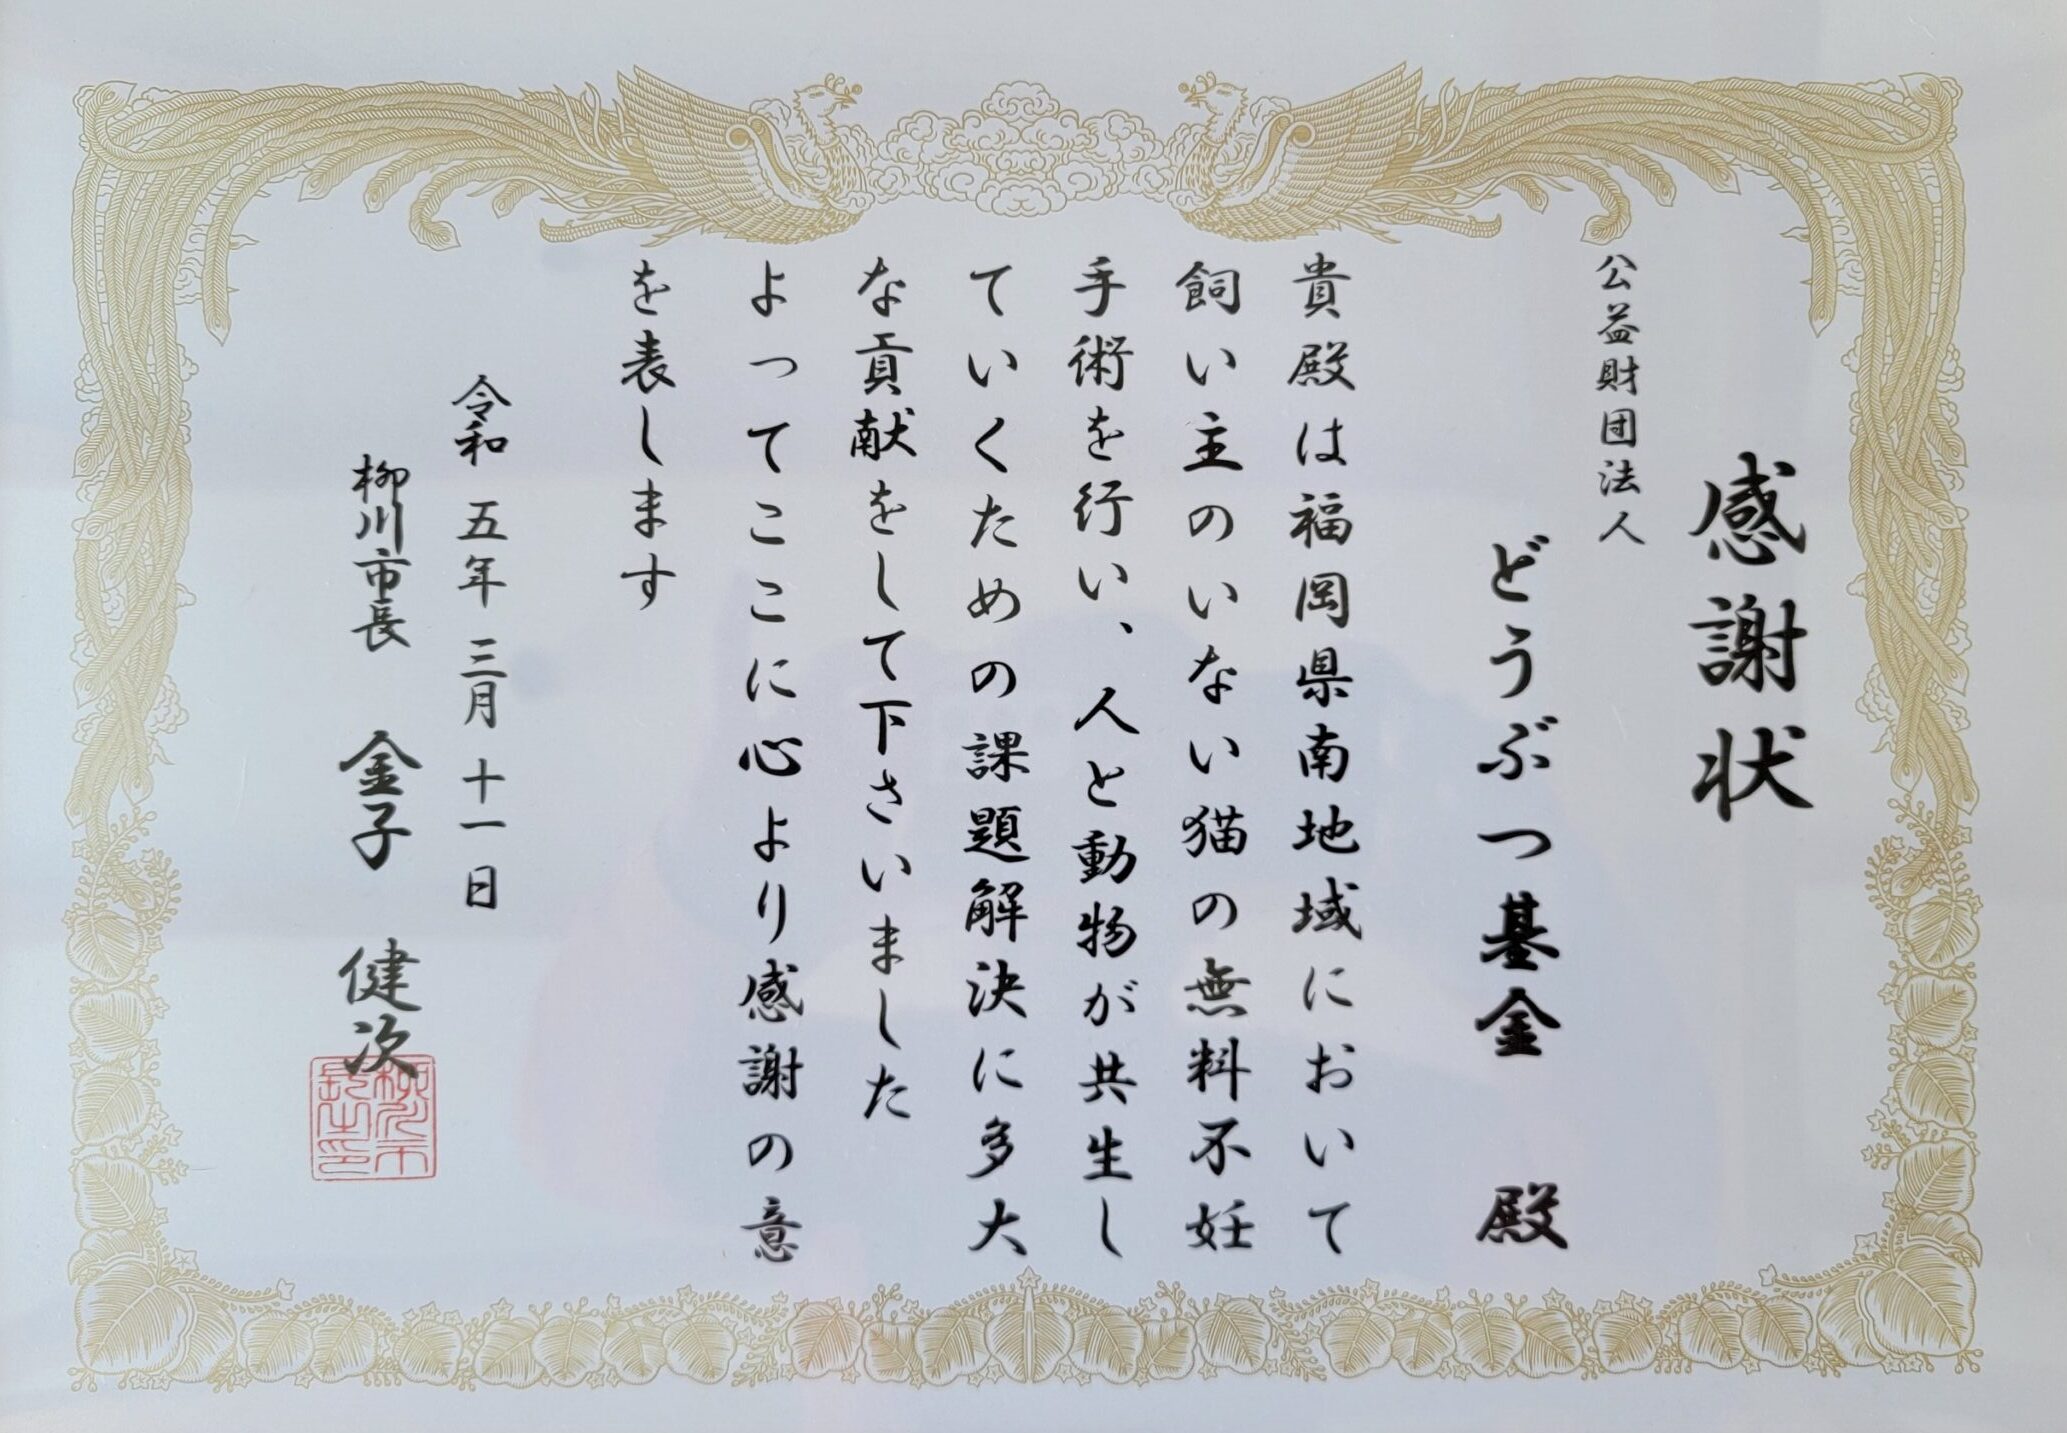 感謝状
公益財団法人
どうぶつ基金 殿
貴殿は福岡県南地域において
飼い主のいない猫の無料不妊
手術を行い、人と動物が共生し
ていくための課題解決に多大
な貢献をして下さいました
よってここに心より感謝の意
を表します
令和 五年 三月 十一日
柳川市長 金子 健次
柳川市
長之印